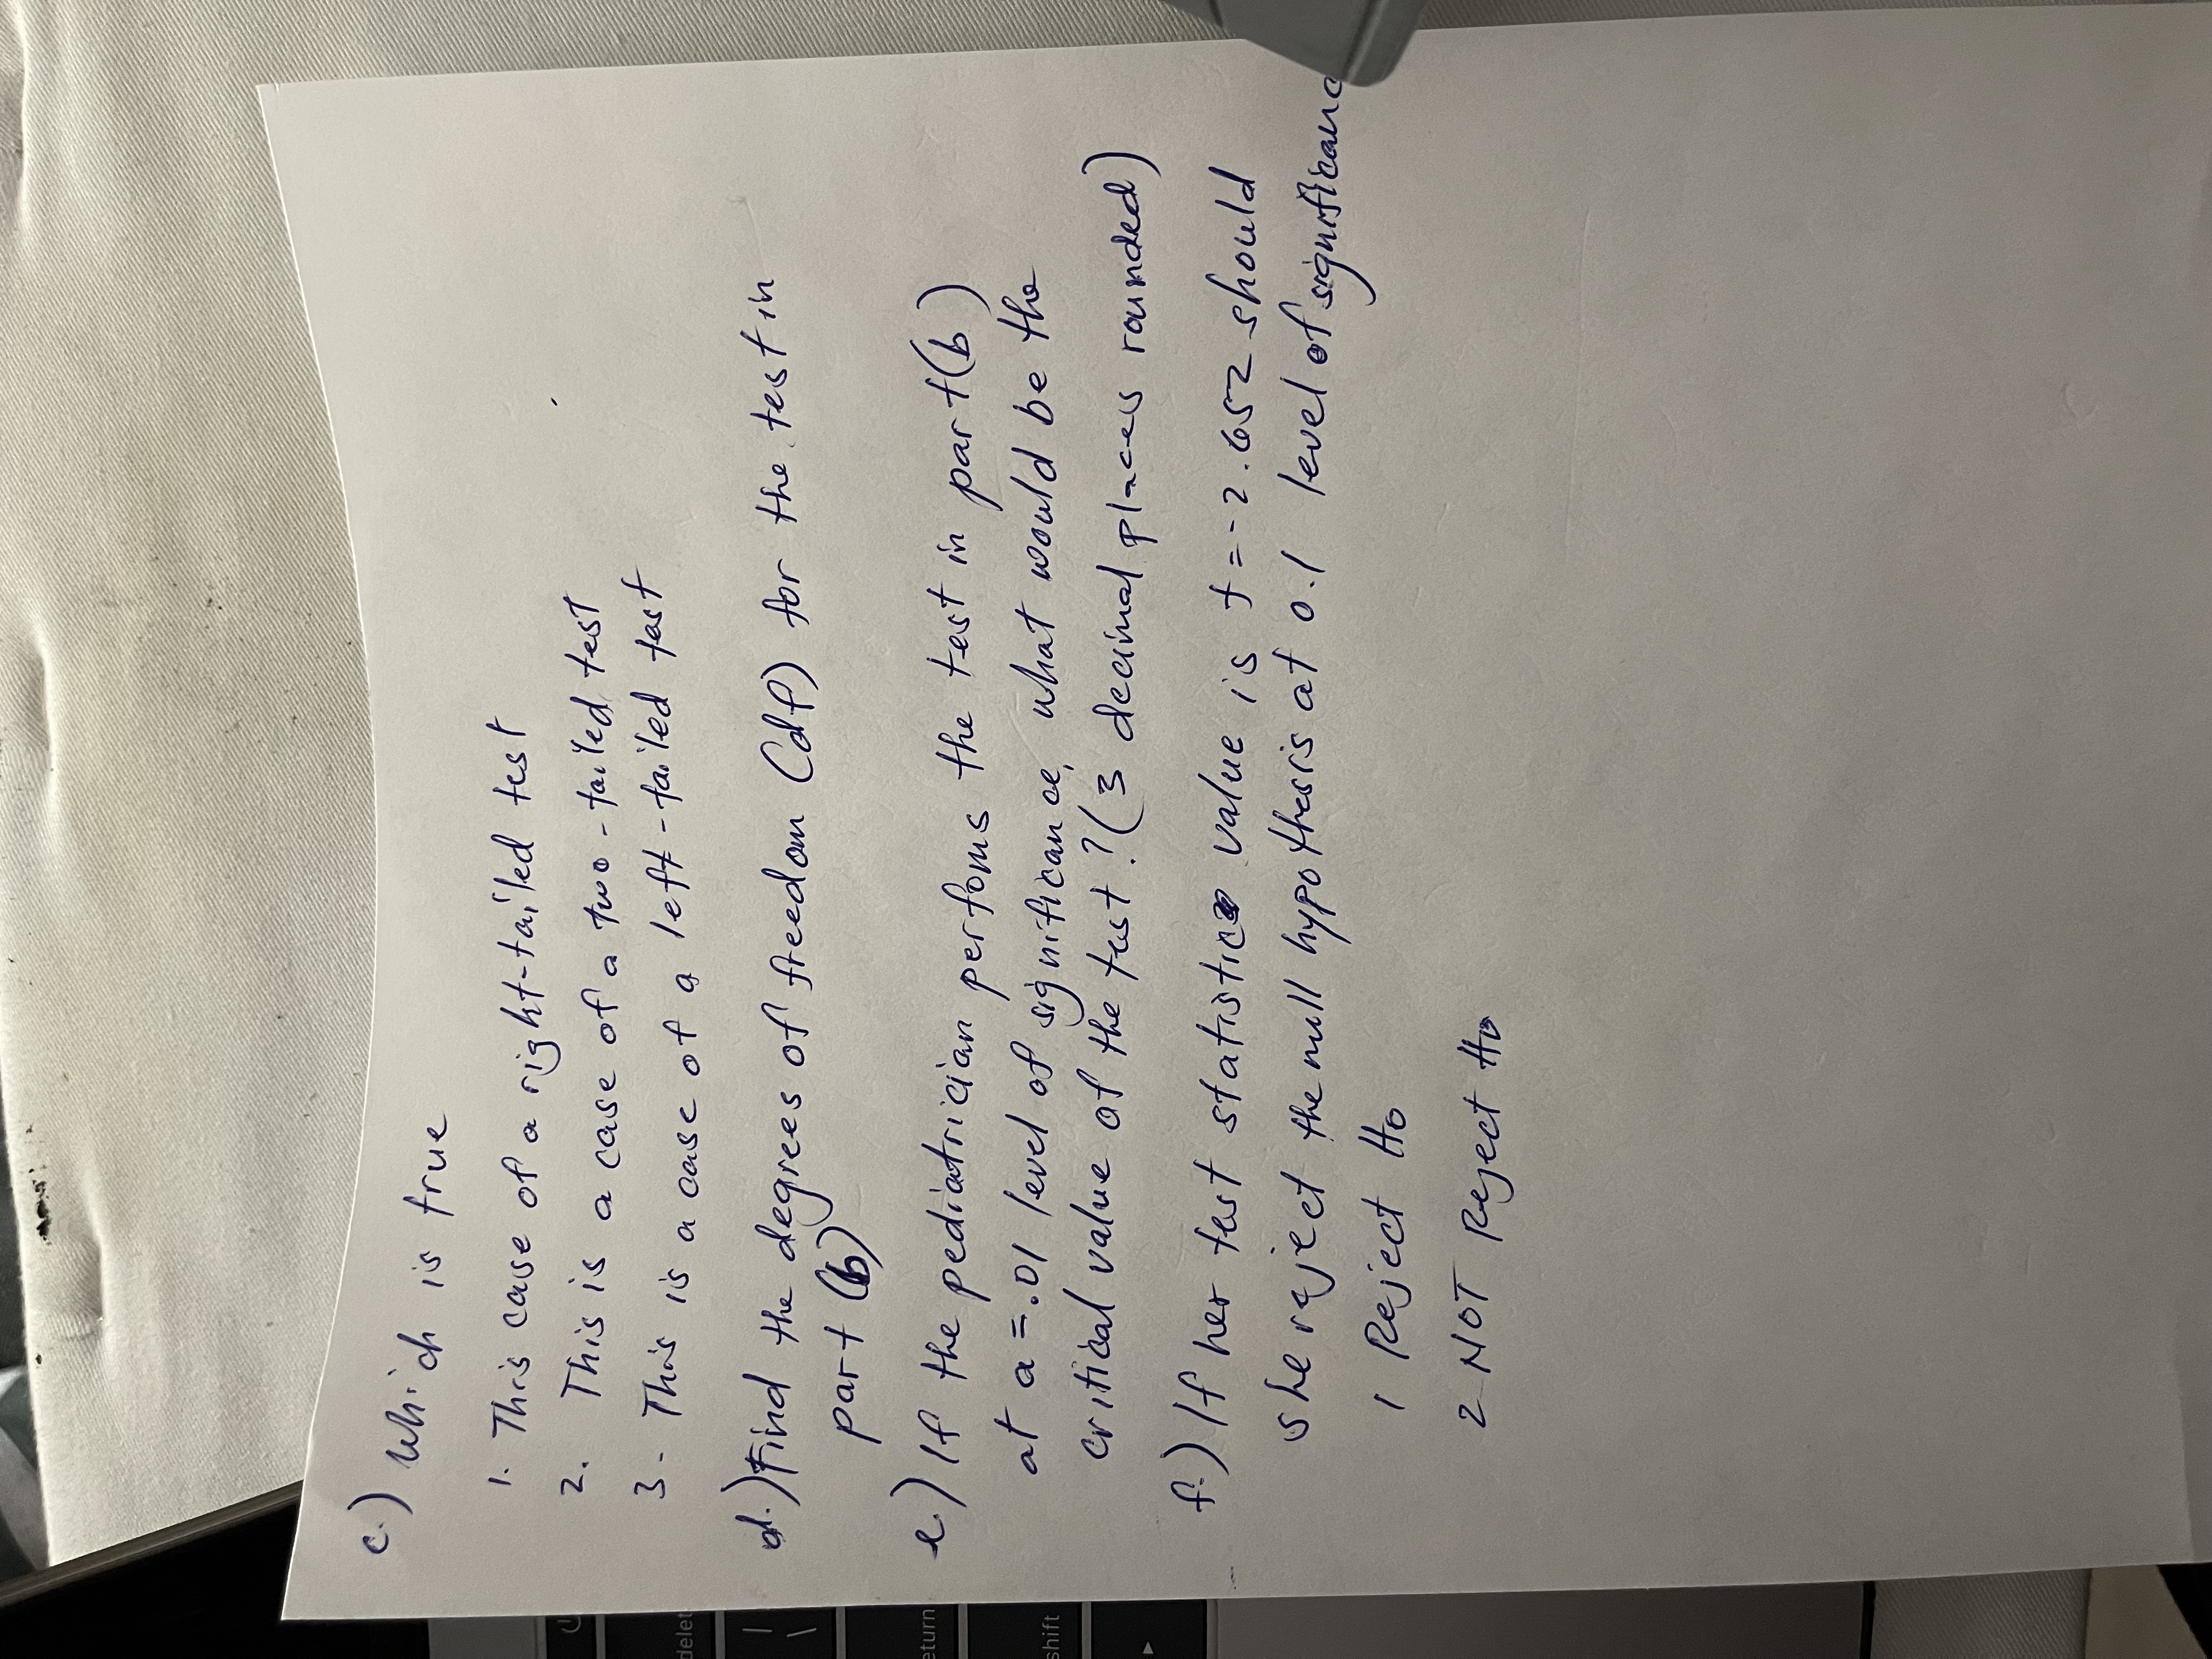 c.) Which is true
1. This case of a right-tailed test
2. This is a case of a two-tailed test
3- This is a case of a left-tailed test
d.) Find the degrees of freedom (df) for the test in
part (b)
e.) If the pediatrician perfoms the test in part (b)
at a = .01 level of significance, what would be the
critical value of the test? (3 decimal places rounded)
f.) If her test statistic value is t = -2.652 should
she reject the null hypothesis at 0.1 level of significanc
1 Reject Ho
2 NOT Reject Ho
delet
|
\
eturn
shift